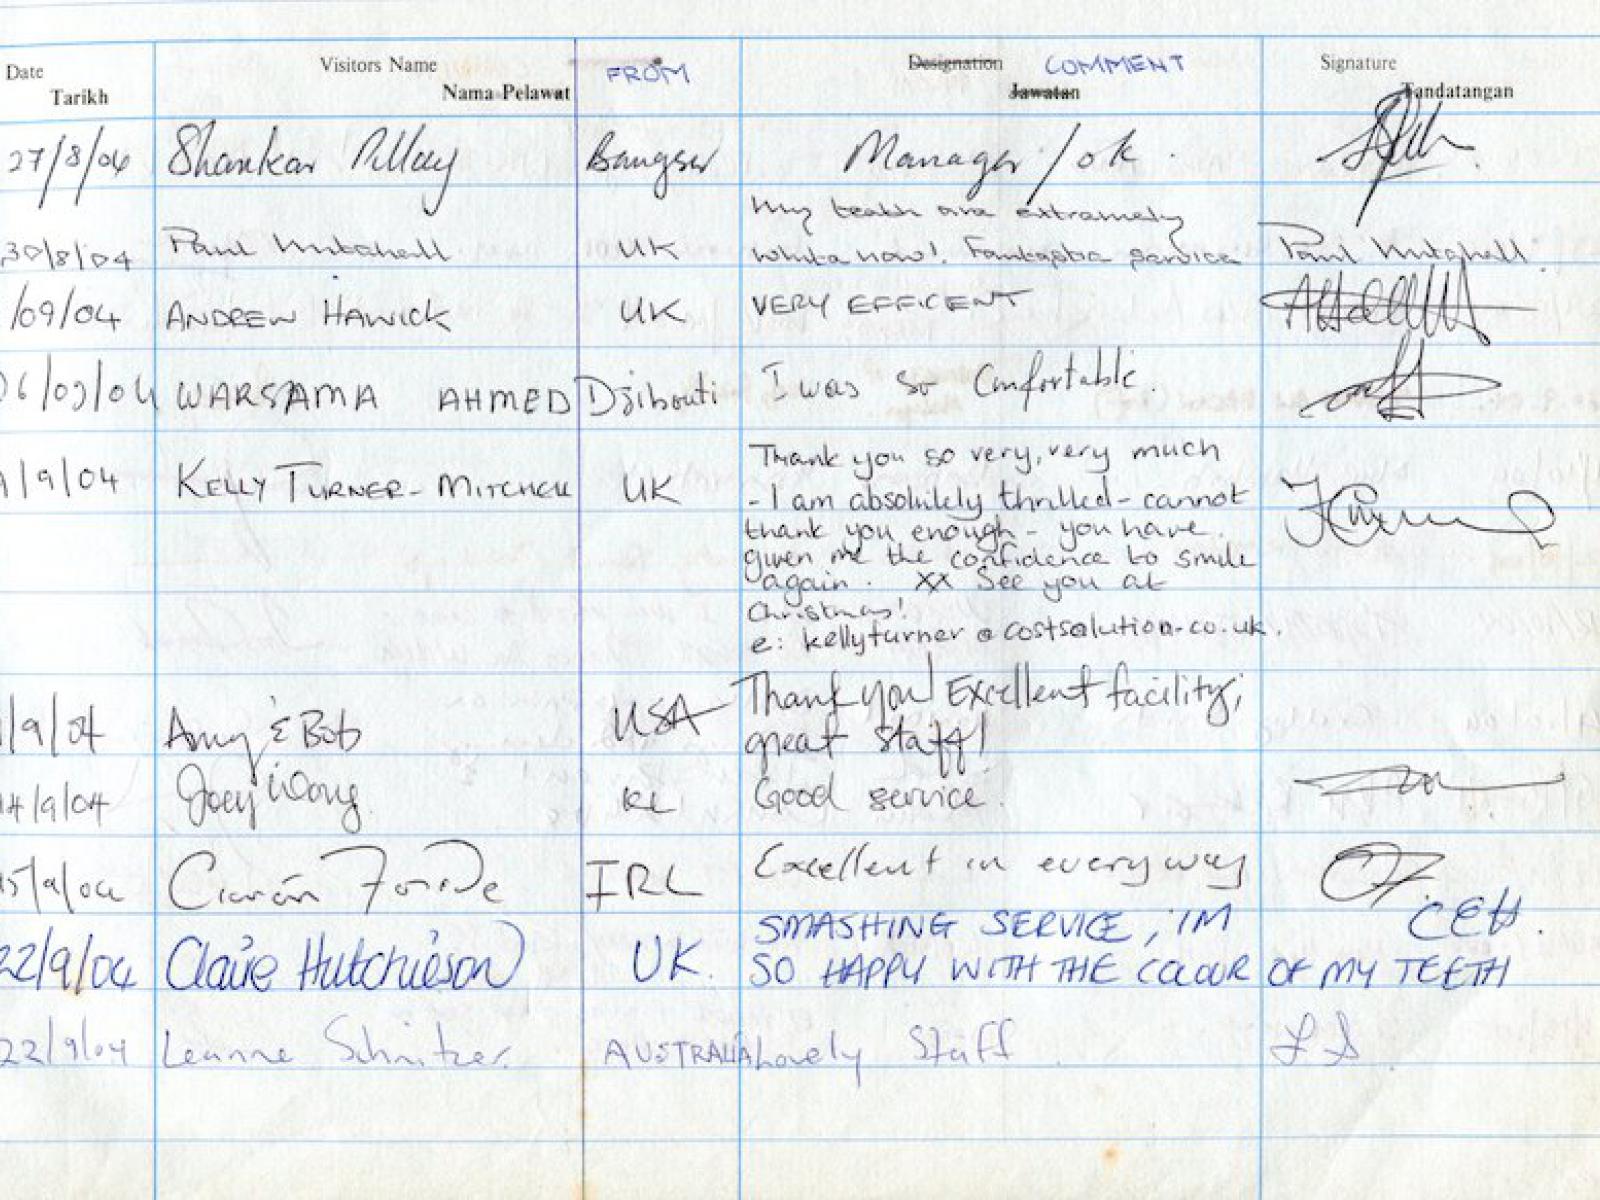 Date Visitors Name FROM Designation COMMENT Signature
Tarikh Nama Pelawat Jawatan Tandatangan
27/8/04 Shankar Pillay Bangsar Manager / ok.
My teeth are extremely
30/8/04 Paul Mitchell UK white now! Fantastic service Paul Mitchell
/09/04 ANDREW HAWICK UK VERY EFFICENT
06/09/04 WARSAMA AHMED Djibouti I was so Comfortable.
Thank you so very, very much
/9/04 KELLY TURNER-MITCHELL UK - I am absolutely thrilled - cannot
thank you enough - you have
given me the confidence to smile
again. XX See you at
Christmas!
e: kellyturner@costsolution.co.uk.
Thank you! Excellent facility;
/9/04 Amy & Bob USA great staff!
14/9/04 Joey Wong KL Good service.
15/9/04 Ciarán Forde IRL Excellent in every way
SMASHING SERVICE, IM CEH.
22/9/04 Claire Hutchieson UK. SO HAPPY WITH THE COLOUR OF MY TEETH
22/9/04 Leanne Schnitzer. AUSTRALIA Lovely Staff. LS